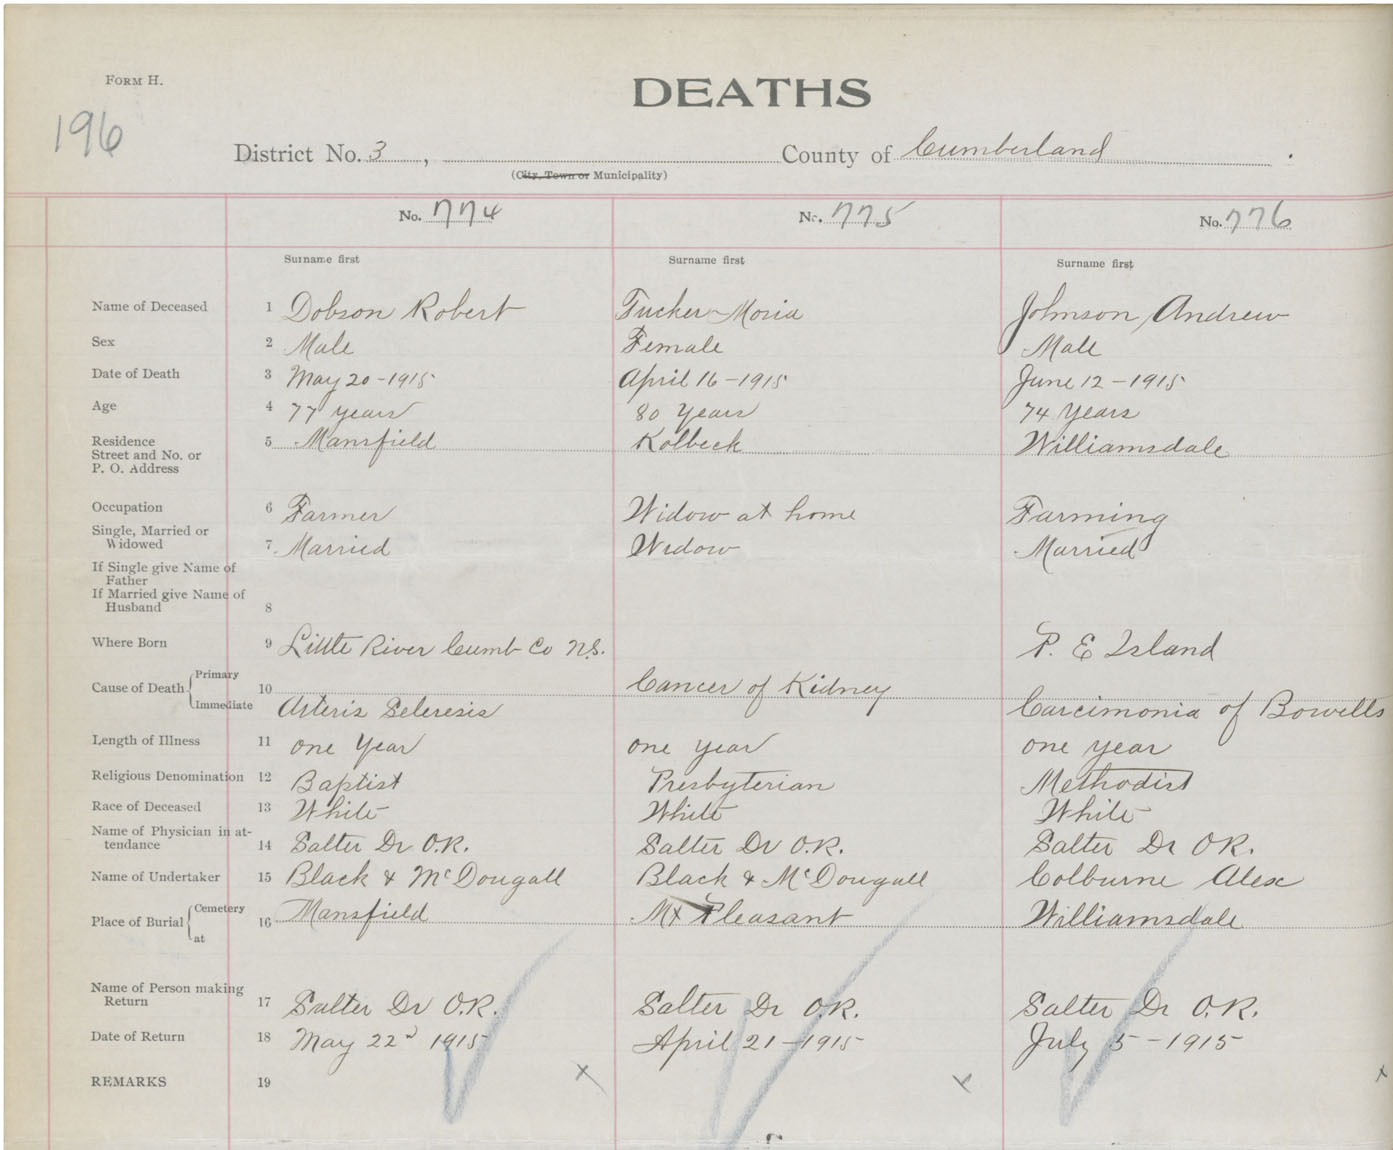 FORM H.
DEATHS
196
District No. 3, County of Cumberland.
(City, Town or Municipality)
No. 774 No. 775 No. 776
Surname first Surname first Surname first
Name of Deceased 1 Dobson Robert Tucker Moria Johnson Andrew
Sex 2 Male Female Male
Date of Death 3 May 20-1915 April 16-1915 June 12-1915
Age 4 77 years 80 Years 74 Years
Residence 5 Mansfield Kolbeck Williamsdale
Street and No. or
P. O. Address
Occupation 6 Farmer Widow at home Farming
Single, Married or
Widowed 7 Married Widow Married
If Single give Name of
Father
If Married give Name of
Husband 8
Where Born 9 Little River Cumb Co N.S. P. E Island
Primary
Cause of Death 10 Cancer of Kidney
Immediate Arteris Scleresis Carcimonia of Bowells
Length of Illness 11 one Year one year one year
Religious Denomination 12 Baptist Presbyterian Methodist
Race of Deceased 13 White White White
Name of Physician in at-
tendance 14 Salter Dr O.R. Salter Dr O.R. Salter Dr O.R.
Name of Undertaker 15 Black & McDougall Black & McDougall Colburne Alex
Cemetery
Place of Burial 16 Mansfield Mt Pleasant Williamsdale
at
Name of Person making
Return 17 Salter Dr O.R. Salter Dr O.R. Salter Dr O.R.
Date of Return 18 May 22d 1915 April 21-1915 July 5-1915
REMARKS 19 x x x